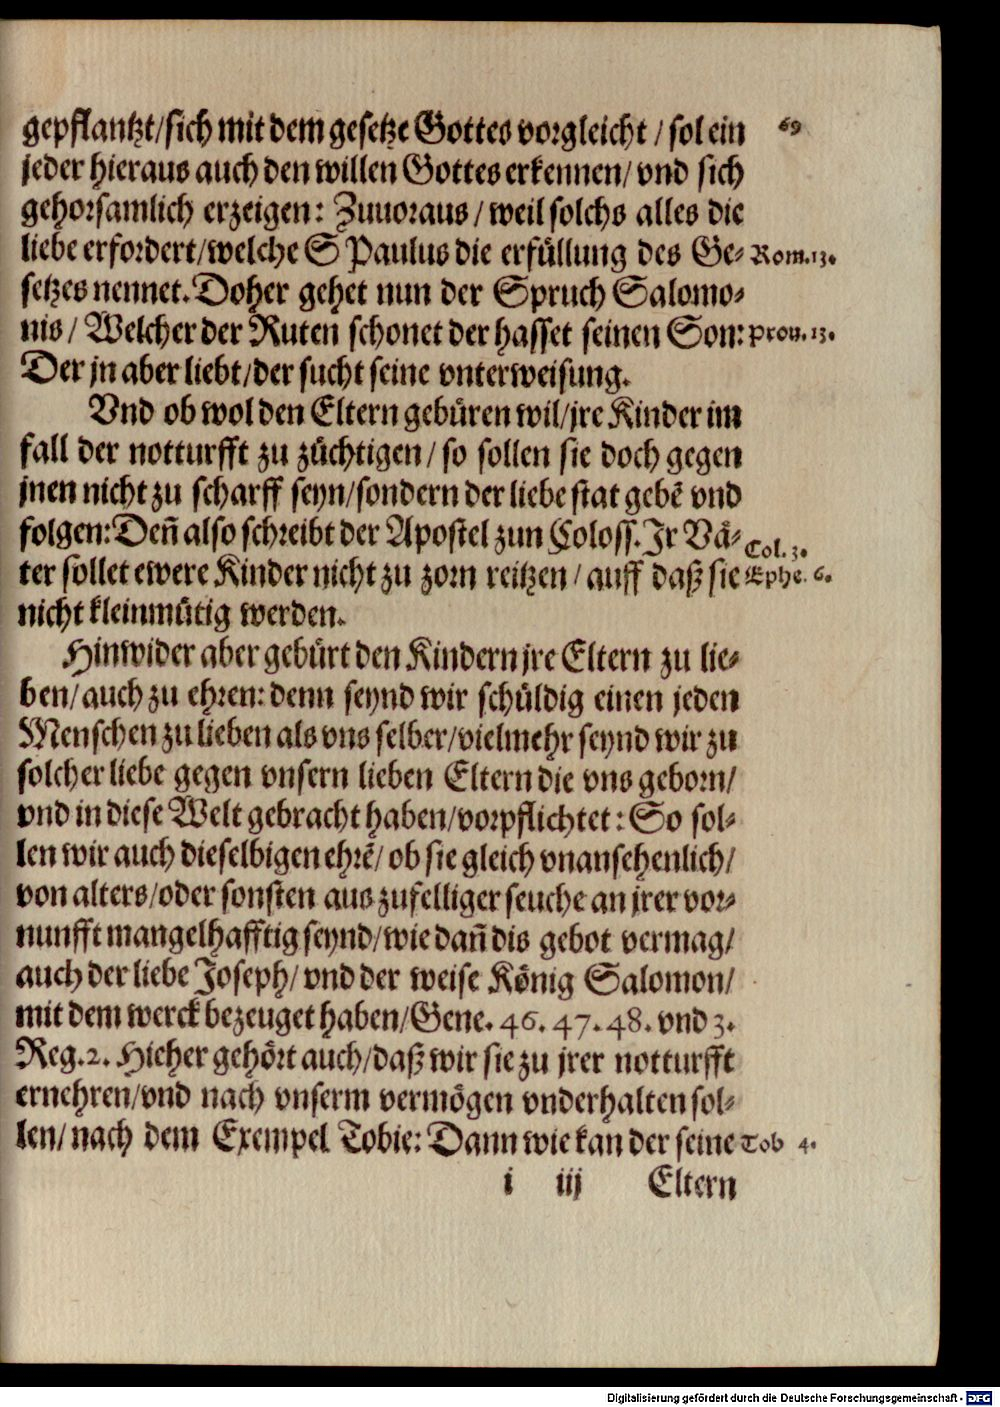 gepflantzt/sich mit dem gesetze Gottes vorgleicht / sol ein 69
jeder hieraus auch den willen Gottes erkennen/ vnd sich
gehorsamlich erzeigen: Zuuoraus / weil solchs alles die
liebe erfordert/welche S Paulus die erfüllung des Ge- Rom.13.
setzes nennet. Doher gehet nun der Spruch Salomo-
nis/ Welcher der Ruten schonet der hasset seinen Son: prou. 13.
Der jn aber liebt/der sucht seine vnterweisung.
Vnd ob wol den Eltern gebüren wil/jre Kinder im
fall der notturfft zu züchtigen / so sollen sie doch gegen
jnen nicht zu scharff seyn/sondern der liebe stat gebē vnd
folgen: Den̄ also schreibt der Apostel zun Coloss. Jr Vä- Col. 3.
ter sollet ewere Kinder nicht zu zorn reitzen / auff daß sie Ephe. 6.
nicht kleinmütig werden.
Hinwider aber gebürt den Kindern jre Eltern zu lie-
ben/auch zu ehren: denn seynd wir schüldig einen jeden
Menschen zu lieben als vns selber/vielmehr seynd wir zu
solcher liebe gegen vnsern lieben Eltern die vns geborn/
vnd in diese Welt gebracht haben/vorpflichtet: So sol-
len wir auch dieselbigen ehrē/ ob sie gleich vnansehenlich/
von alters/oder sonsten aus zufelliger seuche an jrer vor-
nunfft mangelhafftig seynd/wie dan̄ dis gebot vermag/
auch der liebe Joseph/ vnd der weise König Salomon/
mit dem werck bezeuget haben/Gene. 46. 47. 48. vnd 3.
Reg. 2. Hieher gehört auch/daß wir sie zu jrer notturfft
ernehren/vnd nach vnserm vermögen vnderhalten sol-
len/ nach dem Exempel Tobie: Dann wie kan der seine Tob 4.
i iij Eltern
Digitalisierung gefördert durch die Deutsche Forschungsgemeinschaft - DFG